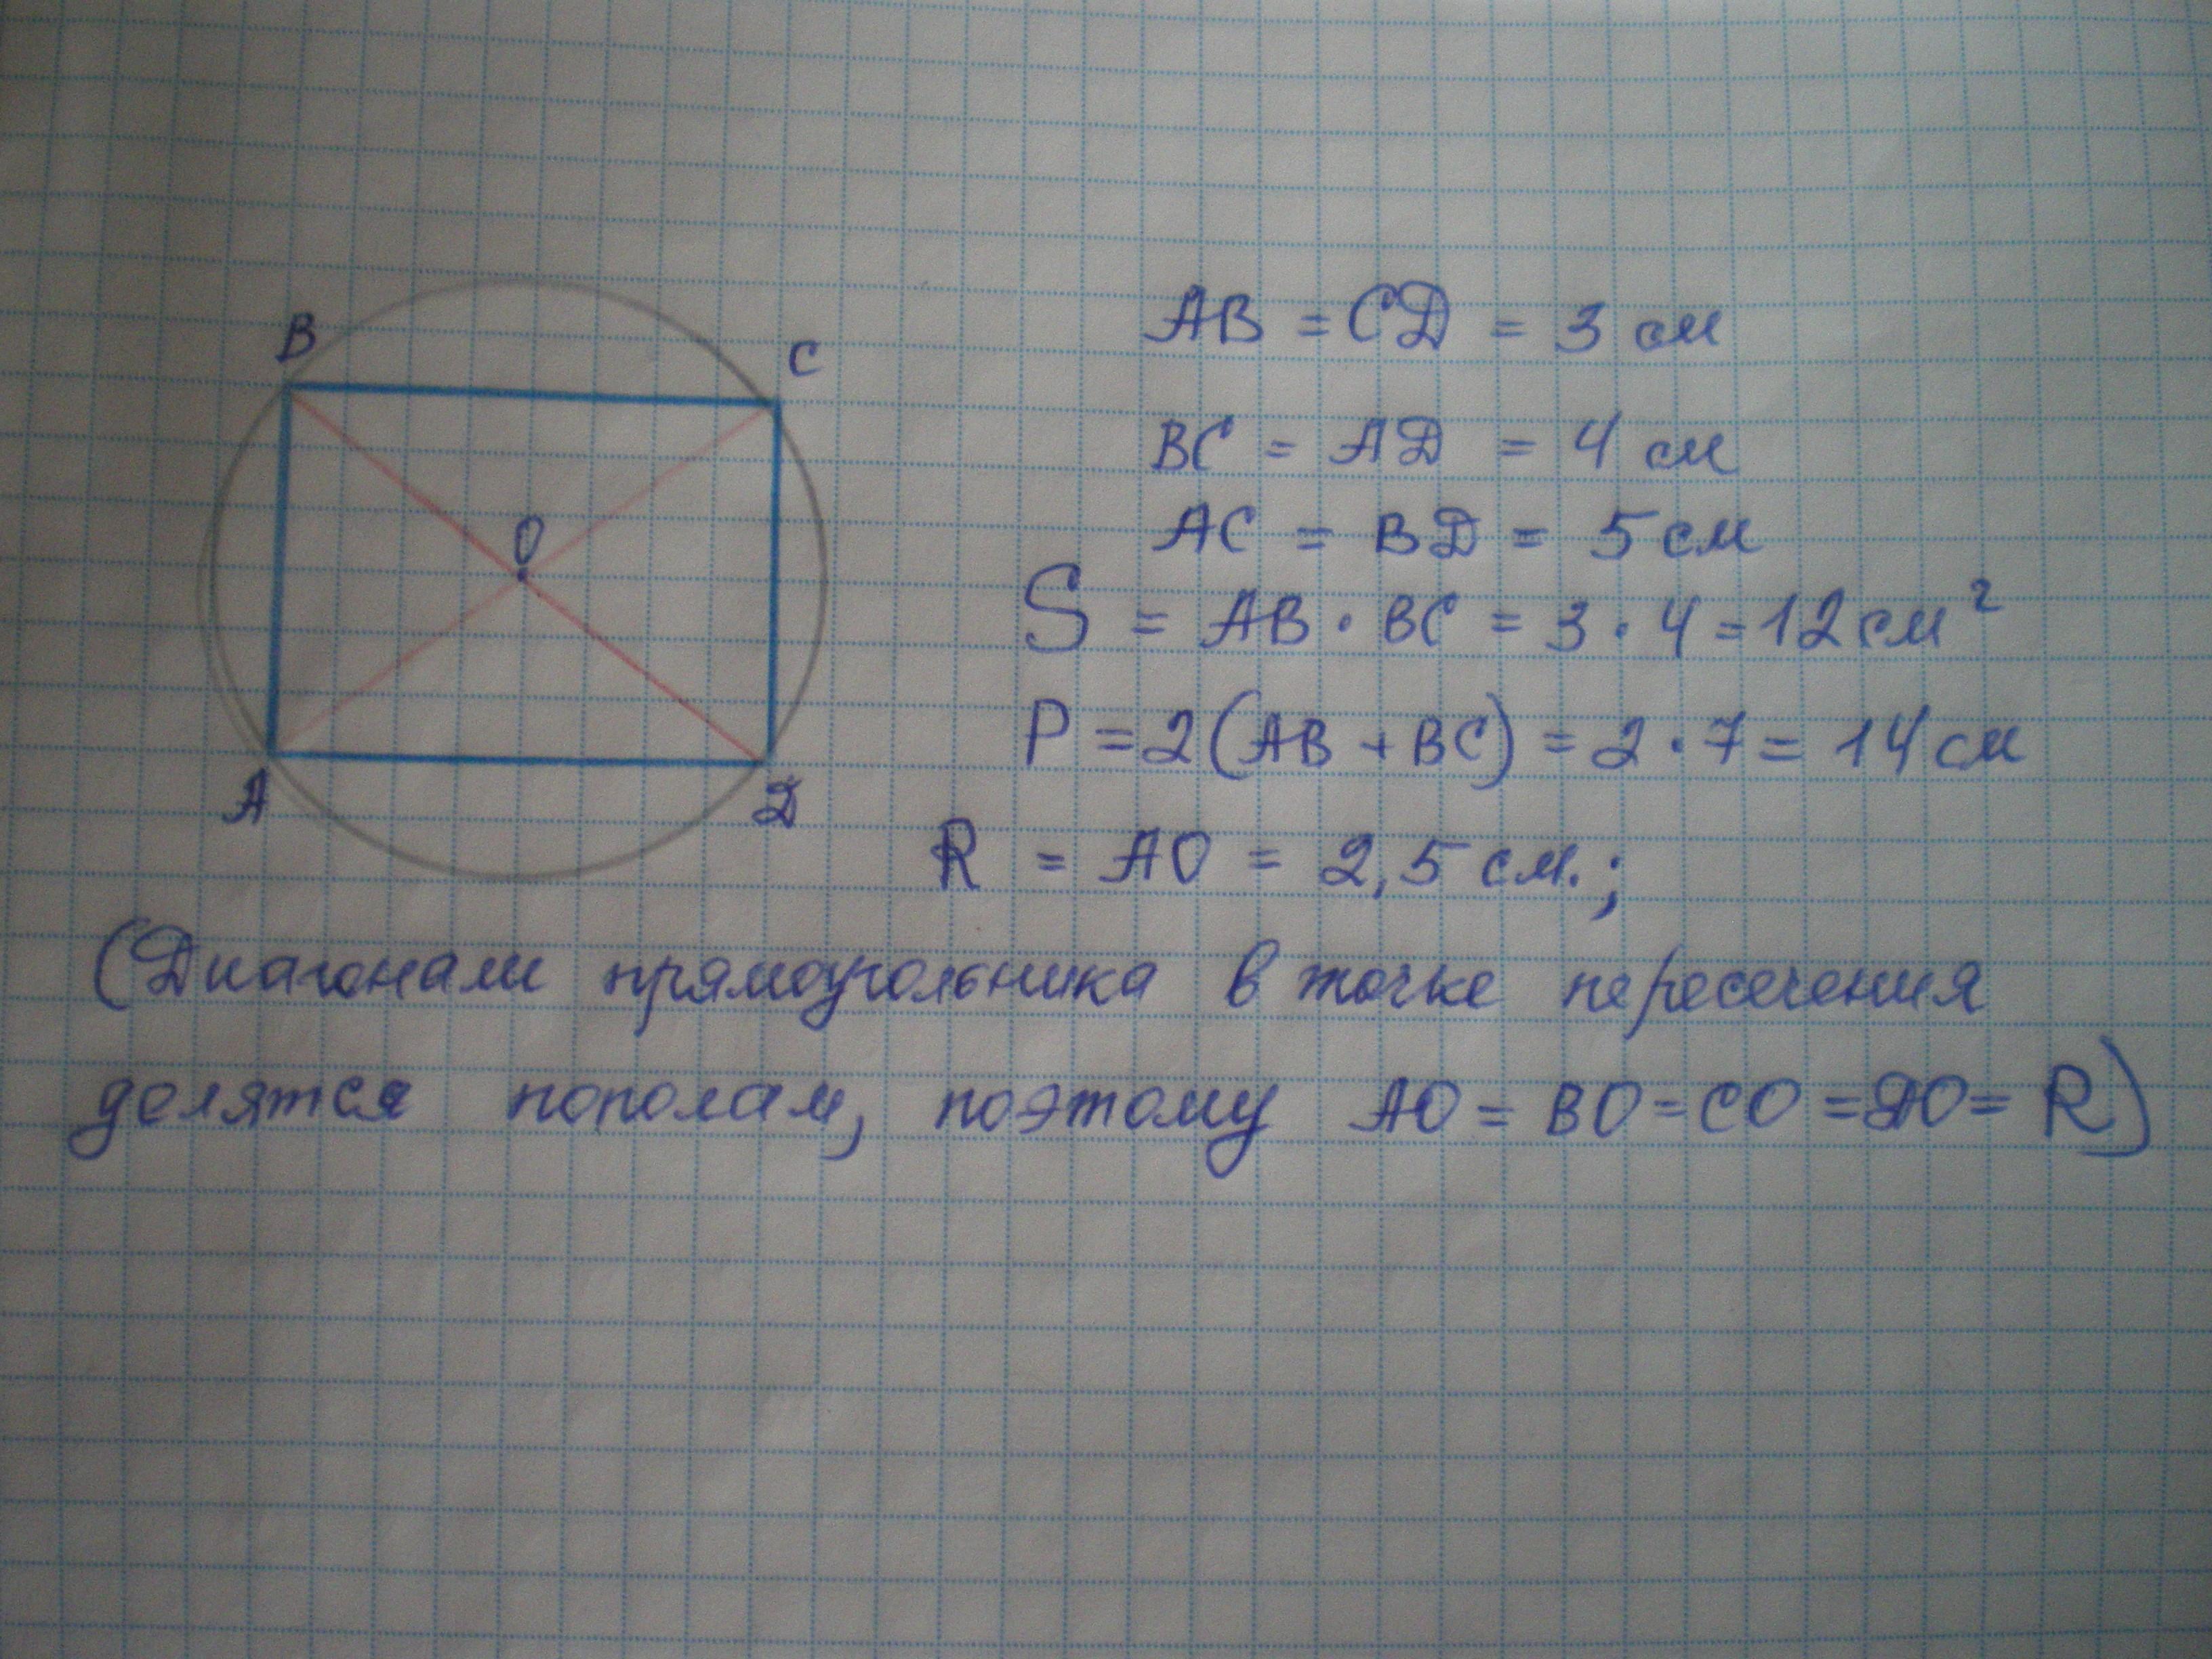 B
C
O
A
D
AB = CD = 3 см
BC = AD = 4 см
AC = BD = 5 см
S = AB · BC = 3 · 4 = 12 см²
P = 2(AB + BC) = 2 · 7 = 14 см
R = AO = 2,5 см.;
(Диагонали прямоугольника в точке пересечения
делятся пополам, поэтому AO = BO = CO = DO = R)